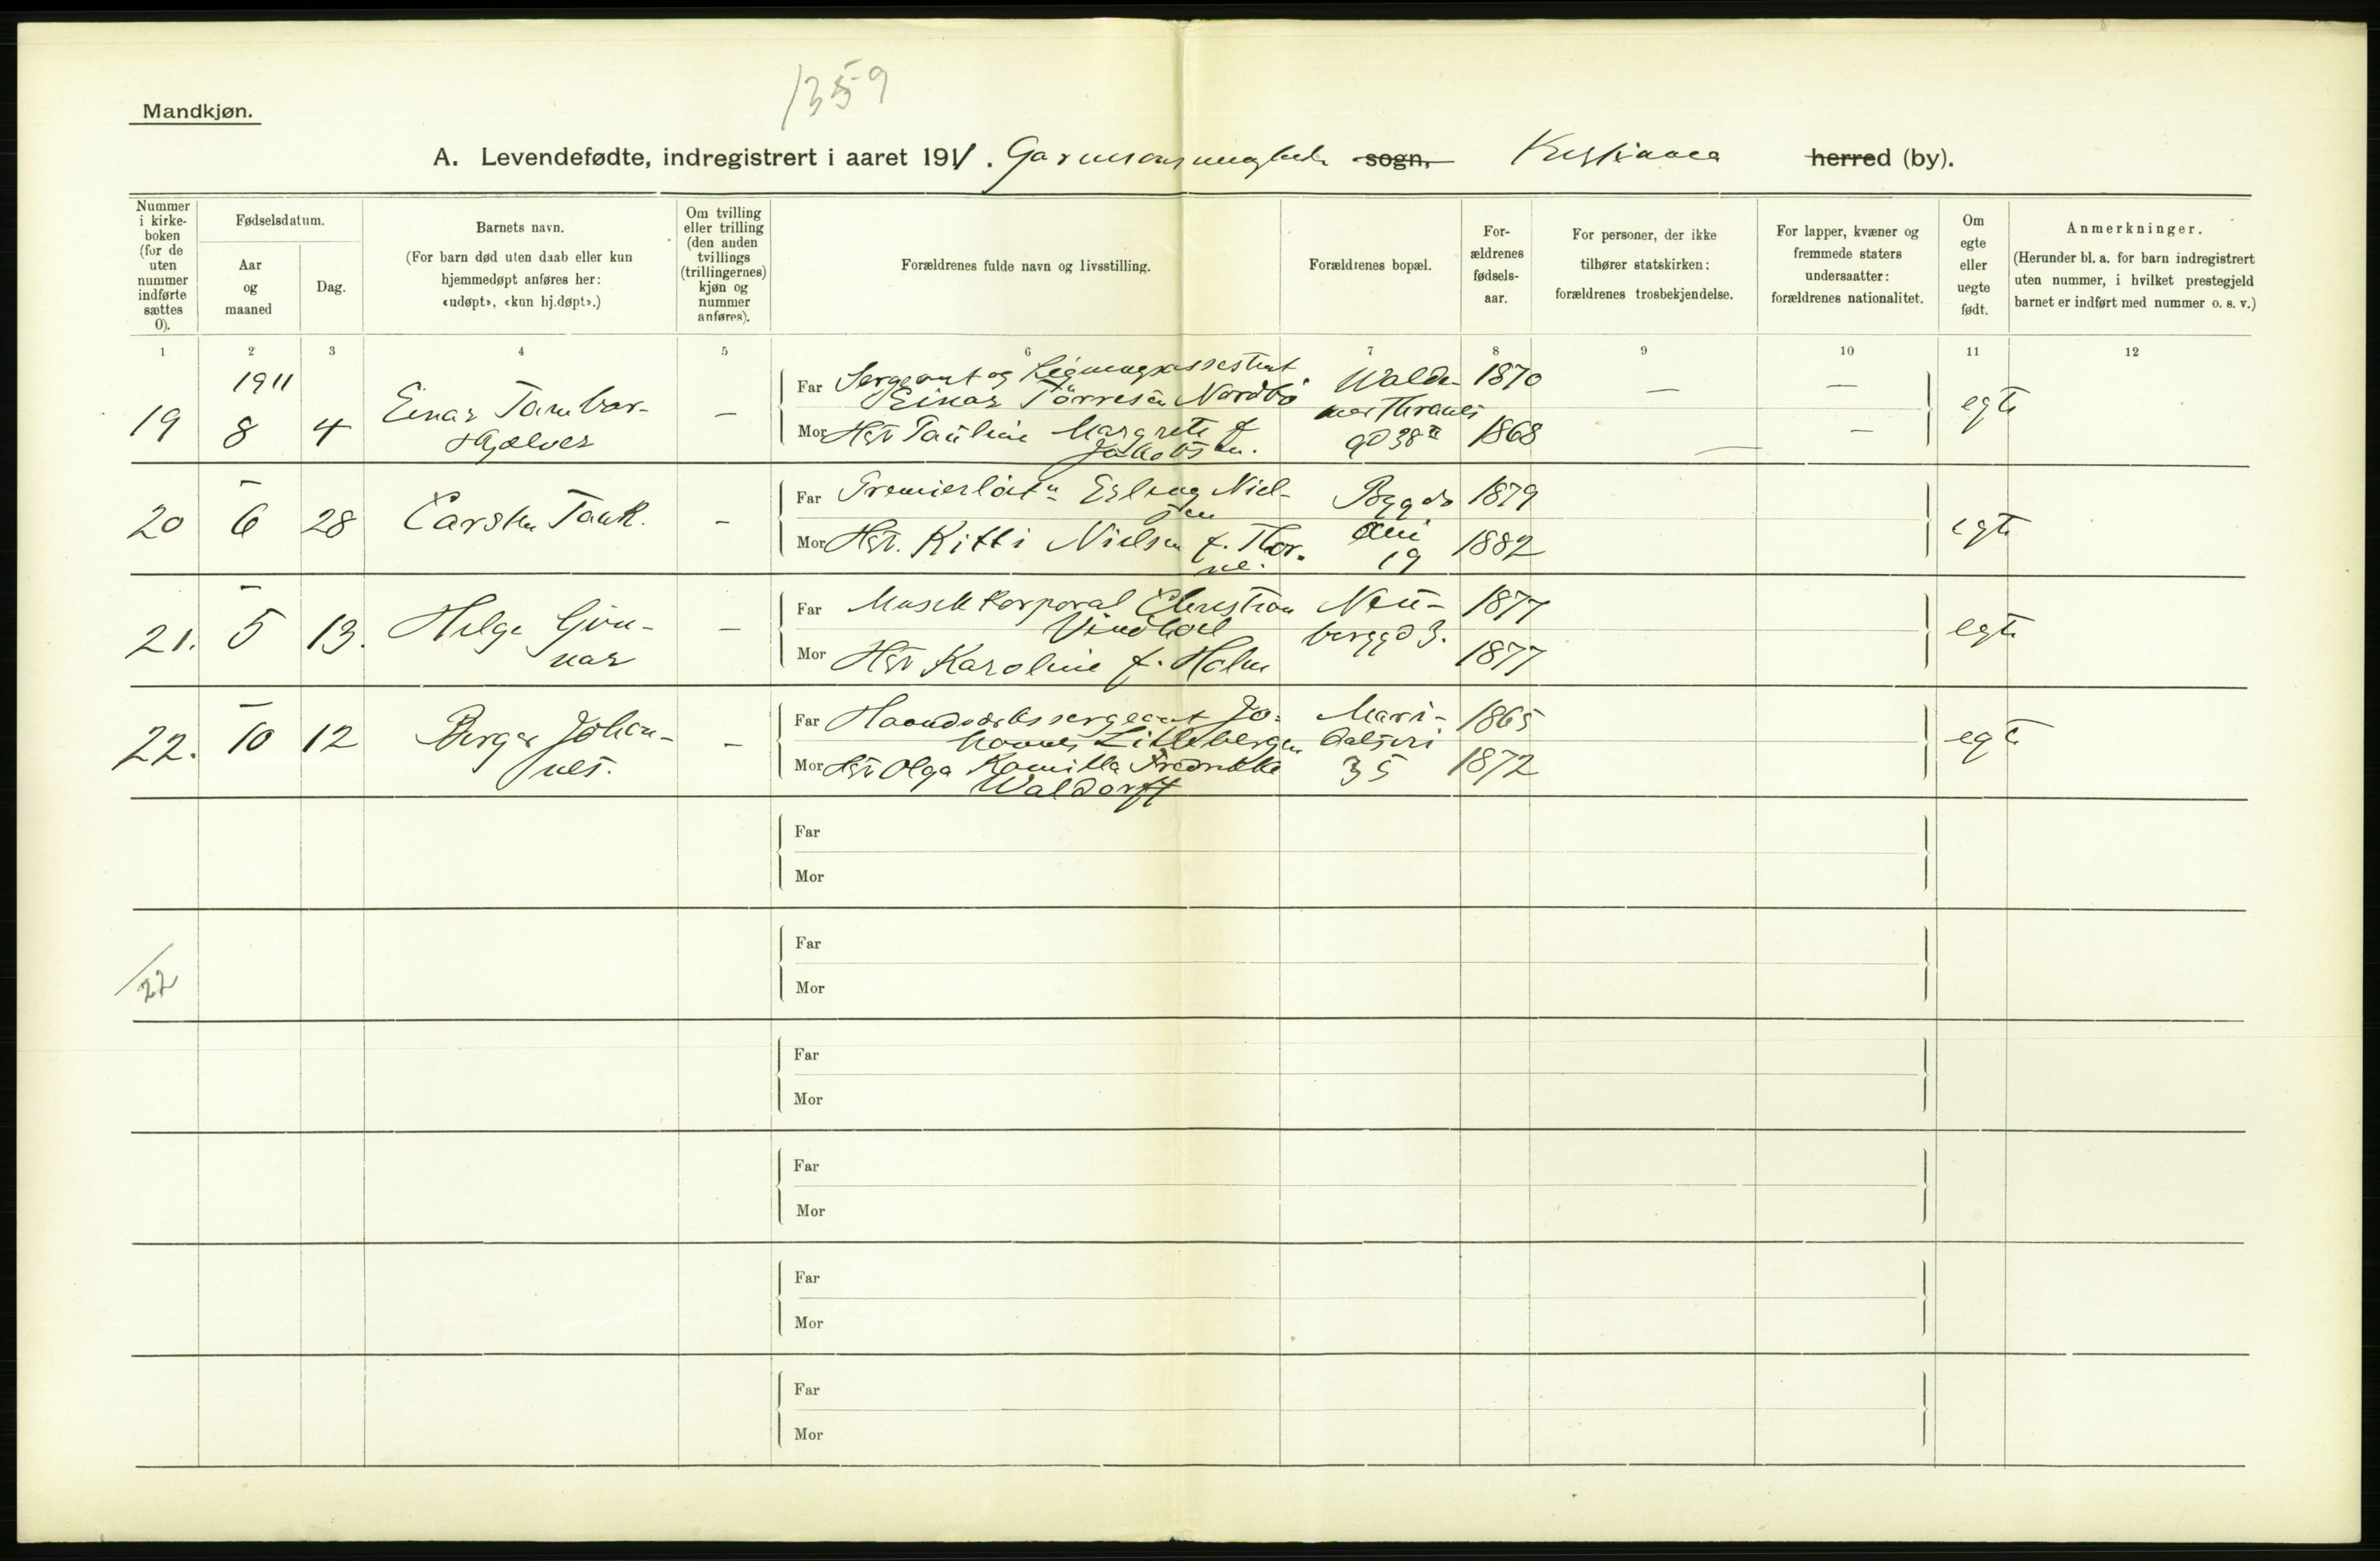 1359
Mandkjøn.
A. Levendefødte, indregistrert i aaret 1911. Garnisonsmenighed sogn, Kristiania herred (by).
Nummer i kirke-boken (for de uten nummer indførte sættes 0).
Fødselsdatum.
Aar og maaned
Dag.
Barnets navn.
(For barn død uten daab eller kun hjemmedøpt anføres her: «udøpt», «kun hj.døpt».)
Om tvilling eller trilling (den anden tvillings (trillingernes) kjøn og nummer anføres).
Forældrenes fulde navn og livsstilling.
Forældrenes bopæl.
For-ældrenes fødsels-aar.
For personer, der ikke tilhører statskirken: forældrenes trosbekjendelse.
For lapper, kvæner og fremmede staters undersaatter: forældrenes nationalitet.
Om egte eller uegte født.
Anmerkninger.
(Herunder bl. a. for barn indregistrert uten nummer, i hvilket prestegjeld barnet er indført med nummer o. s. v.)
1 2 3 4 5 6 7 8 9 10 11 12
1911
19 8 4 Einar Tambar- Hjelver –
Far Sergeant og Ligningsassistent Einar Törresen Nordbö Walde- 1870 – –
Mor Hst Pauline Margrete f Jakobsen. mar Thranes gd 38 II 1868 – – egte
20 – 6 28 Carsten Tank. –
Far Premierlöitn Erling Niel- sen Bygdö 1879
Mor Hst. Kitti Nielsen f. Thor- ne. alle 19 1882 egte
21. – 5 13. Helge Gun- nar –
Far Musikkorporal Christian Vindhol Neu- 1877
Mor Hst Karoline f. Holm berggd 3. 1877 egte
22. – 10 12 Birger Johan- nes. –
Far Haandverkssergeant Jo- hannes Lillebergen Mari- 1865
Mor Hst Olga Kamilla Fredrikke Waldorff dalsvei 35 1872 egte
Far
Mor
/22
Far
Mor
Far
Mor
Far
Mor
Far
Mor
Far
Mor